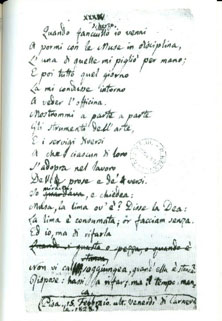 XXXVI
Scherzo.
Quando fanciullo io venni
A pormi con le Muse in disciplina,
L'una di quelle mi pigliò per mano;
E poi tutto quel giorno
La mi condusse intorno
A veder l'officina.
Mostrommi a parte a parte
Gli strumenti dell'arte,
E i servigi diversi
A che ciascun di loro
S'adopra nel lavoro
Delle prose e de' versi.
Io mirava, e chiedea:
Musa, la lima ov'è? Disse la Dea:
La lima è consumata; or facciam senza.
Ed io, ma di rifarla
Non vi cal, soggiungea, quand'ella è
Rispose: hassi a rifar, ma il tempo
Pisa, 15 Febbraio. ult. venerdì di
1828.